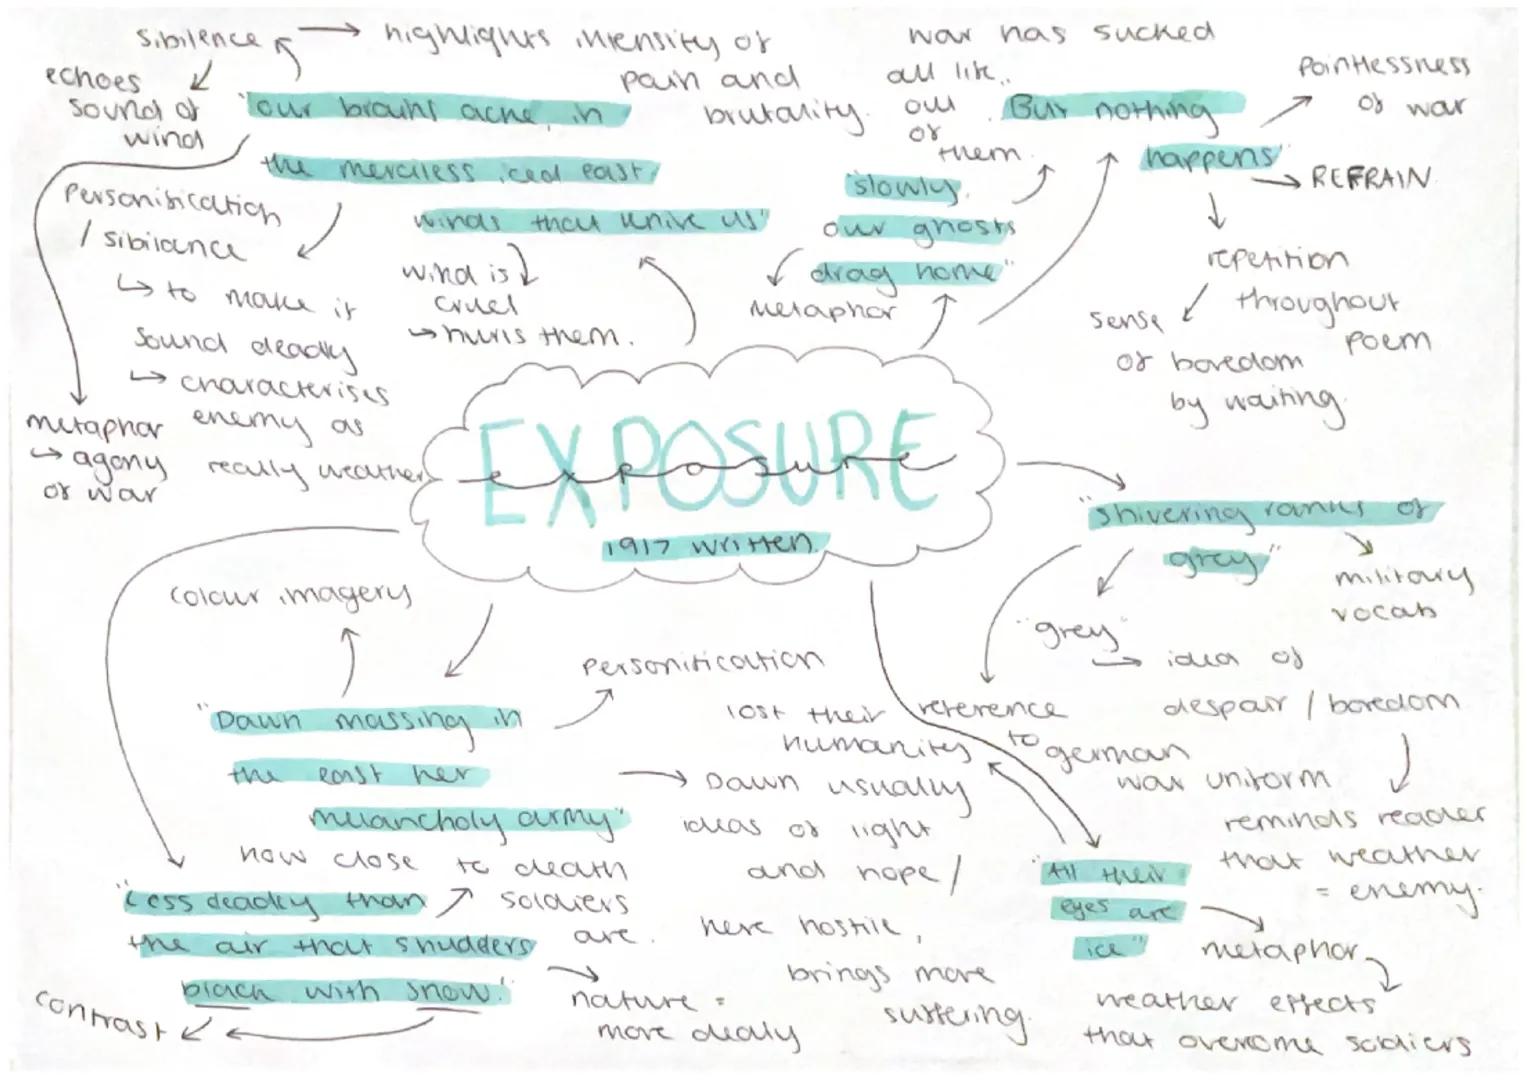 sibilence
echoes
sound of
wind
highlights intensity of
pain and
brutality.
"our brains ache, in
the merciless iced east
winds that knive us"
Personification
/ sibilance
↳ to make it
sound deadly
↳ characterises
enemy as
really weather
metaphor
↳ agony
of war
wind is
cruel
→ hurts them.
war has sucked
all life..
out
of
them.
"slowly,
our ghosts
drag home"
metaphor
"But nothing
happens"
Pointlessness
of war
REFRAIN
repetition
throughout
poem
sense
of boredom
by waiting.
EXPOSURE
exposure
1917 written.
"shivering ranks of
grey"
military
vocab
"grey"
→ idea of
despair / boredom
reminds reader
that weather
= enemy.
reference
to german
war uniform
colour imagery
personification
"Dawn massing in
the east her
melancholy army"
Dawn usually
ideas of light
and hope /
here hostile,
brings more
suffering.
lost their
humanity
"All their
eyes are
ice"
metaphor
weather effects
that overcome soldiers
how close to death
soldiers
are.
"Less deadly than
the air that shudders
black with snow."
contrast
nature =
more dealy